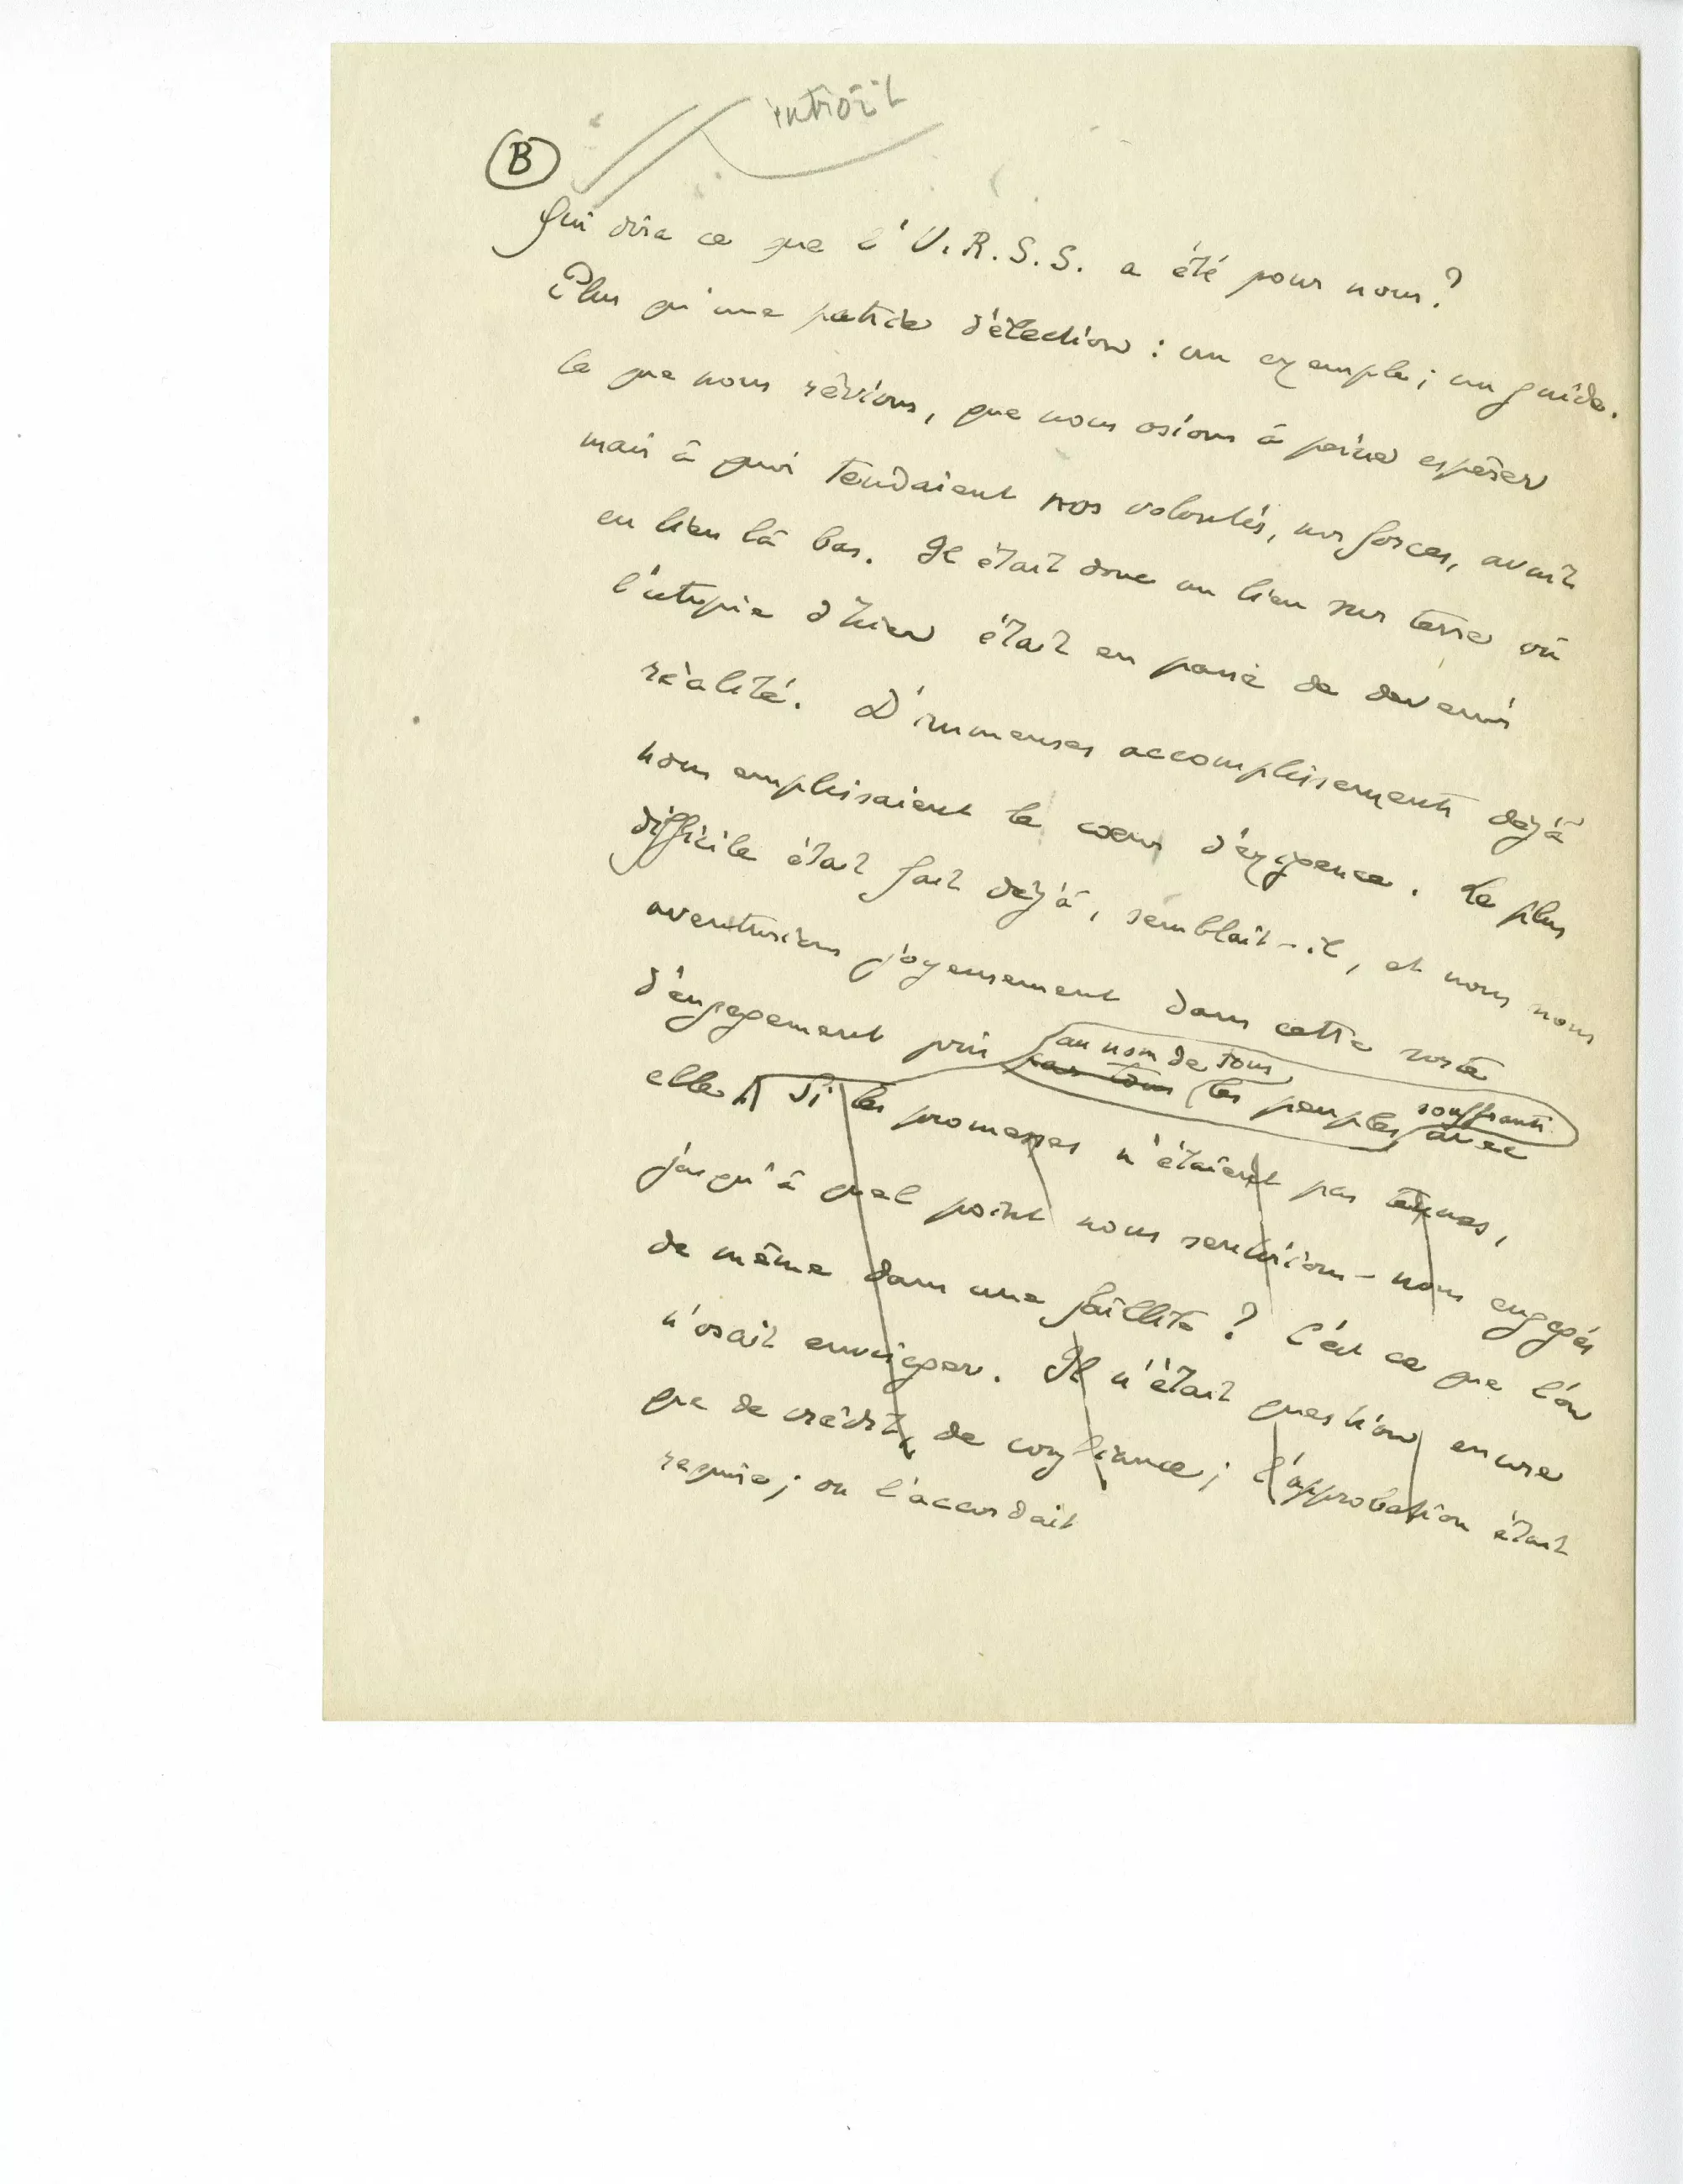 introït
B
Qui dira ce que l'U.R.S.S. a été pour nous?
Plus qu'une patrie d'élection : un exemple; un guide.
Ce que nous rêvions, que nous osions à peine espérer
mais à quoi tendaient nos volontés, nos forces, avait
eu lieu là bas. Il était donc un lieu sur terre où
l'utopie d'hier était en passe de devenir
réalité. D'immenses accomplissements déjà
nous emplissaient le cœur d'exigence. Le plus
difficile était fait déjà, semblait-il, et nous nous
aventurions joyeusement dans cette sorte
au nom de tous
d'engagement pris par tous les peuples avec
souffrants
elle. Si les promesses n'étaient pas tenues,
jusqu'à quel point nous sentirions-nous engagés
de même dans une faillite? C'est ce que l'on
n'osait envisager. Il n'était question encore
que de crédit, de confiance; l'approbation était
requise; on l'accordait